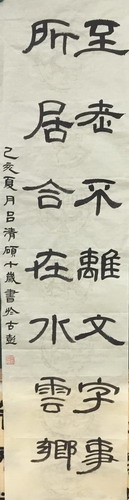 至老不離文字事
所居合在水雲鄉
己亥夏月吕清碩十歲書於古彭